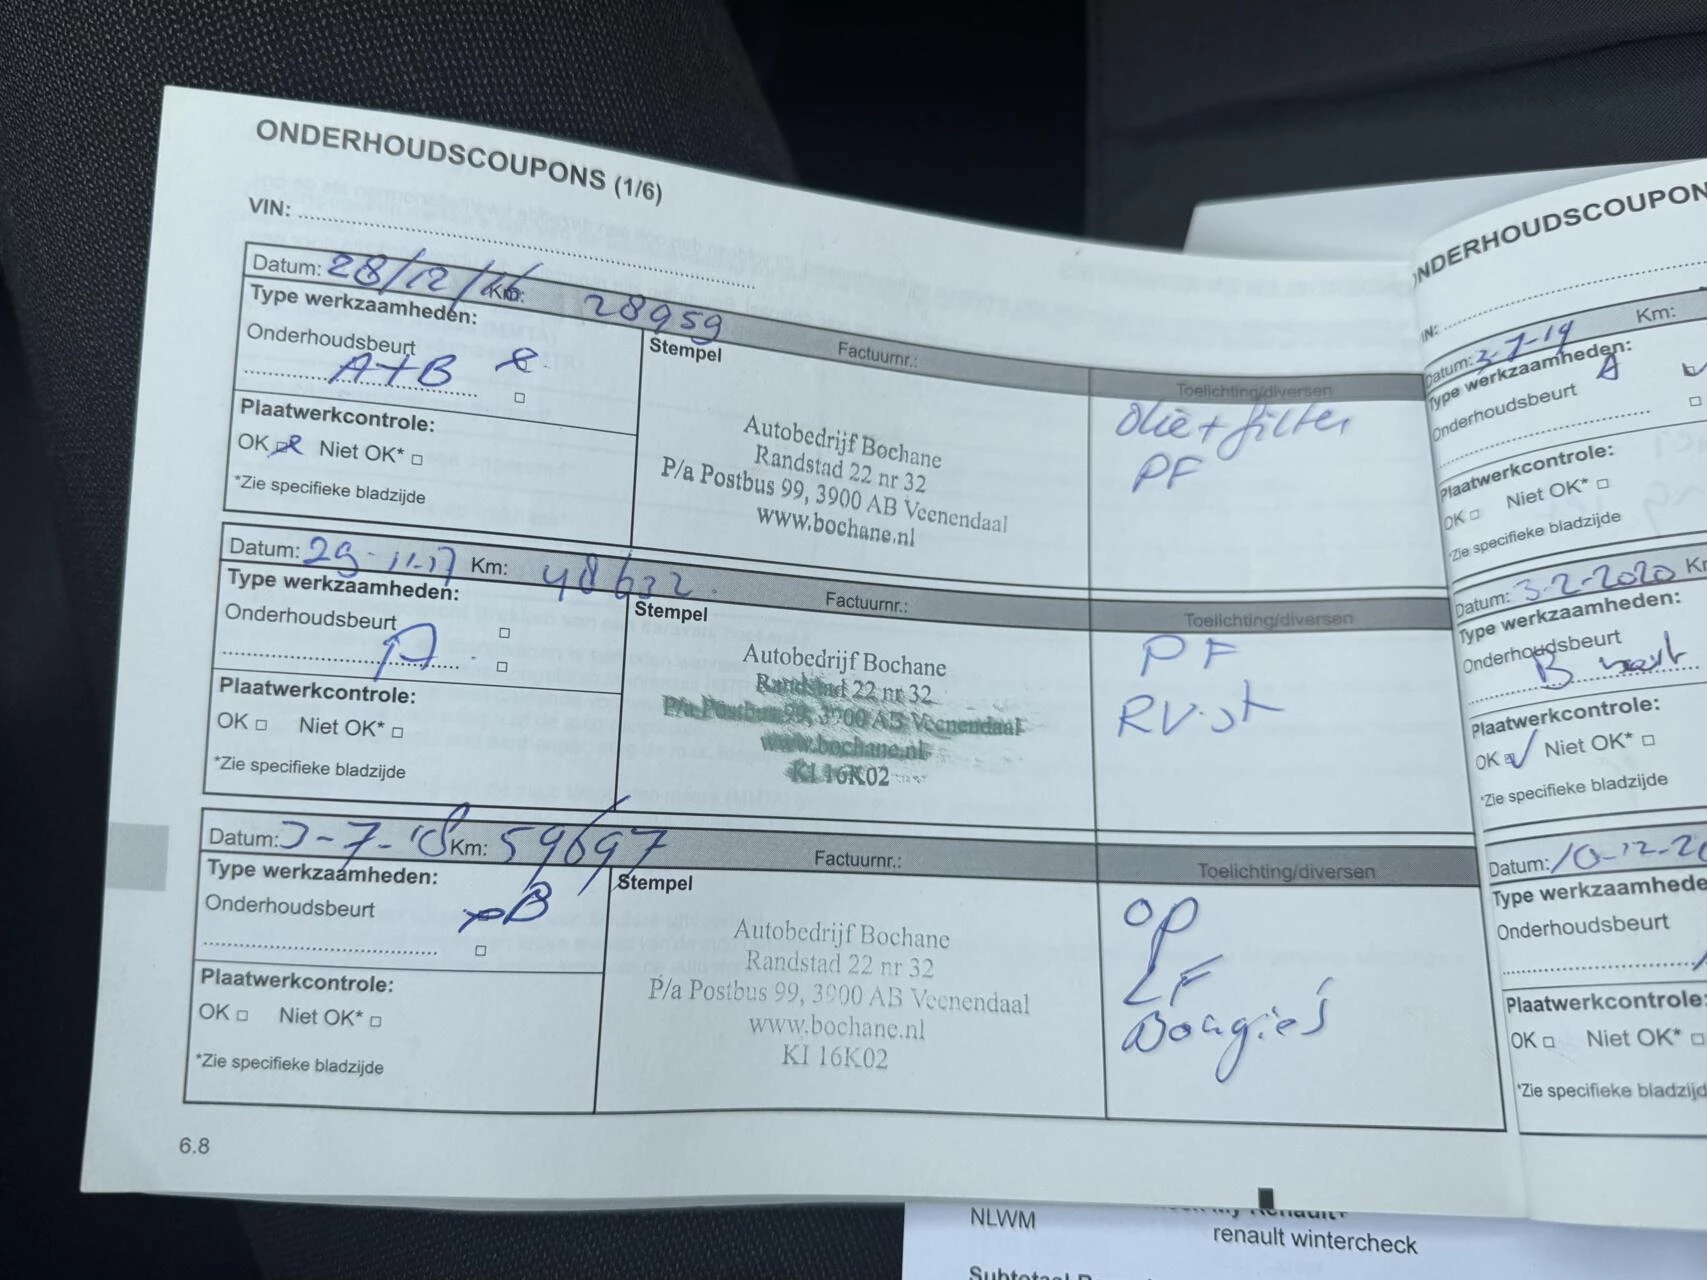 ONDERHOUDSCOUPONS (1/6)
VIN:
Datum: 28/12/16 Km: 28959
Type werkzaamheden:
Onderhoudsbeurt
A+B
Plaatwerkcontrole:
OK Niet OK*
*Zie specifieke bladzijde
Stempel
Factuurnr.:
Autobedrijf Bochane
Randstad 22 nr 32
P/a Postbus 99, 3900 AB Veenendaal
www.bochane.nl
Toelichting/diversen
Olie+filter
PF
Datum: 29-11-17 Km: 48632
Type werkzaamheden:
Onderhoudsbeurt
A
Plaatwerkcontrole:
OK Niet OK*
*Zie specifieke bladzijde
Stempel
Factuurnr.:
Autobedrijf Bochane
Randstad 22 nr 32
P/a Postbus 99, 3900 AB Veenendaal
www.bochane.nl
KI 16K02
Toelichting/diversen
PF
Datum: 3-7-18 Km: 59697
Type werkzaamheden:
Onderhoudsbeurt
B
Plaatwerkcontrole:
OK Niet OK*
*Zie specifieke bladzijde
Stempel
Factuurnr.:
Autobedrijf Bochane
Randstad 22 nr 32
P/a Postbus 99, 3900 AB Veenendaal
www.bochane.nl
KI 16K02
Toelichting/diversen
OP
LF
Bougie's
6.8
ONDERHOUDSCOUPON
IN:
Datum: 3-7-19 Km:
Type werkzaamheden:
Onderhoudsbeurt A
Plaatwerkcontrole:
OK Niet OK*
*Zie specifieke bladzijde
Datum: 3-2-2020 K
Type werkzaamheden:
Onderhoudsbeurt
B
Plaatwerkcontrole:
OK Niet OK*
*Zie specifieke bladzijde
Datum: 10-12-20
Type werkzaamhede
Onderhoudsbeurt
Plaatwerkcontrole:
OK Niet OK*
*Zie specifieke bladzijd
NLWM
My Renault+
renault wintercheck
Subtotaal